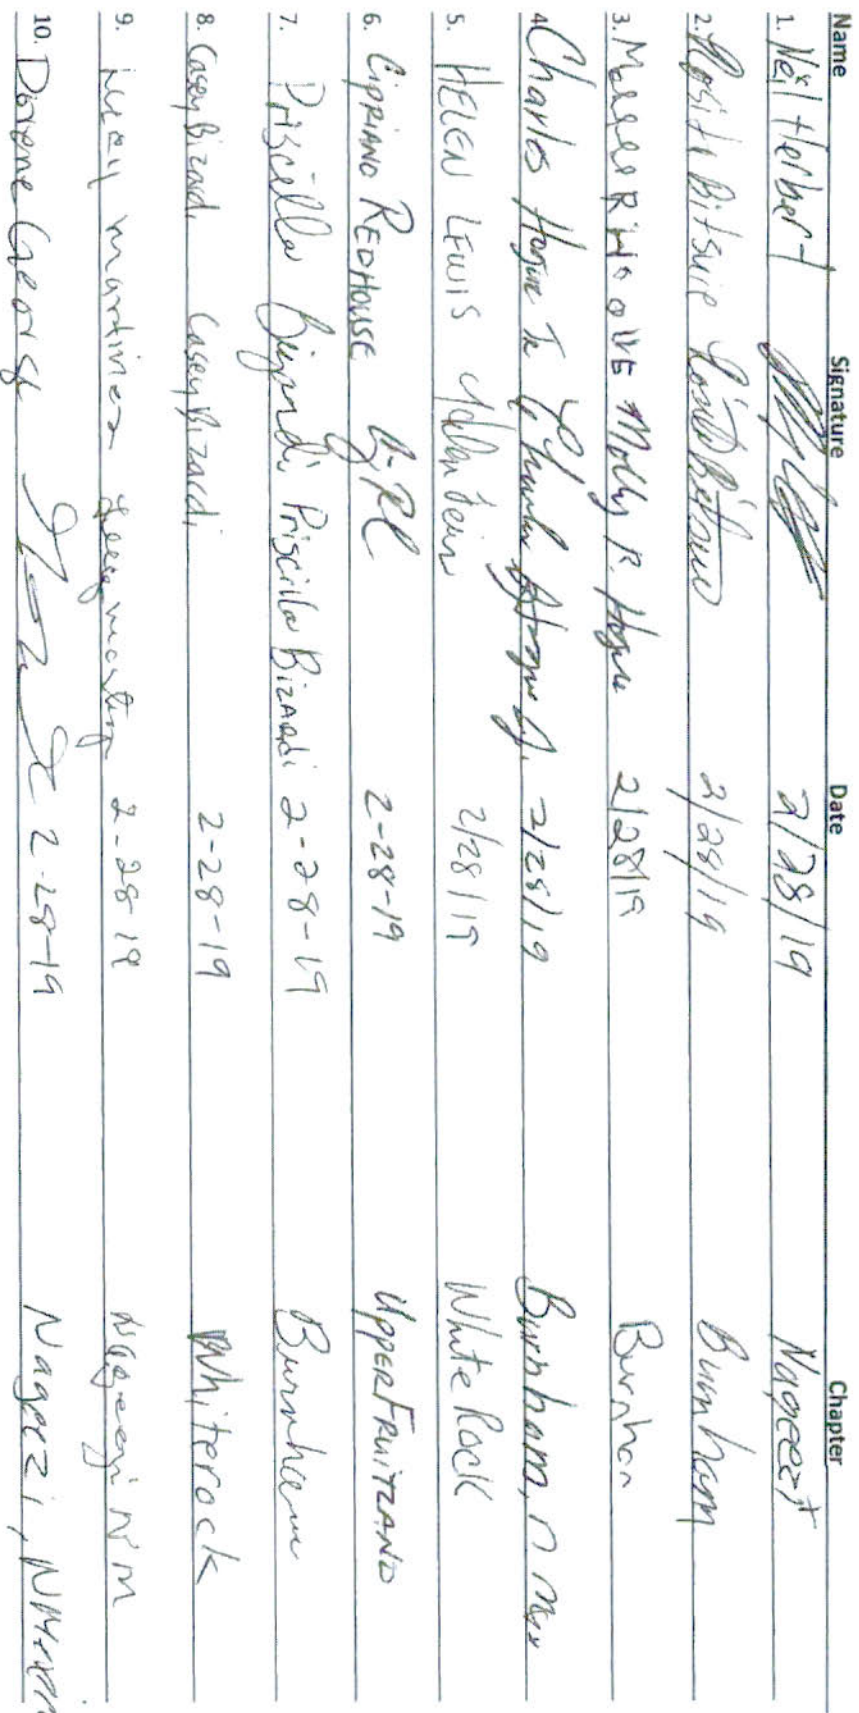 Name Signature Date Chapter
1. Neil Herbert 2/28/19 Nageezi
2. Rosita Bitsuie Rosita Bitsuie 2/28/19 Burnham
3. Molly R. Hogue 2/28/19 Burnham
4. Charles Hogue Jr 2/28/19 Burnham, n mex
5. HELEN LEWIS Helen Lewis 2/28/19 White Rock
6. CIPRIANO REDHOUSE 2-28-19 UPPER FRUITLAND
7. Priscilla Bizardi Priscilla Bizardi 2-28-19 Burnham
8. Casey Bizardi Casey Bizardi 2-28-19 Whiterock
9. martinez 2-28-19 Nageezi NM
10. Dorene George 2-28-19 Nageezi, NM